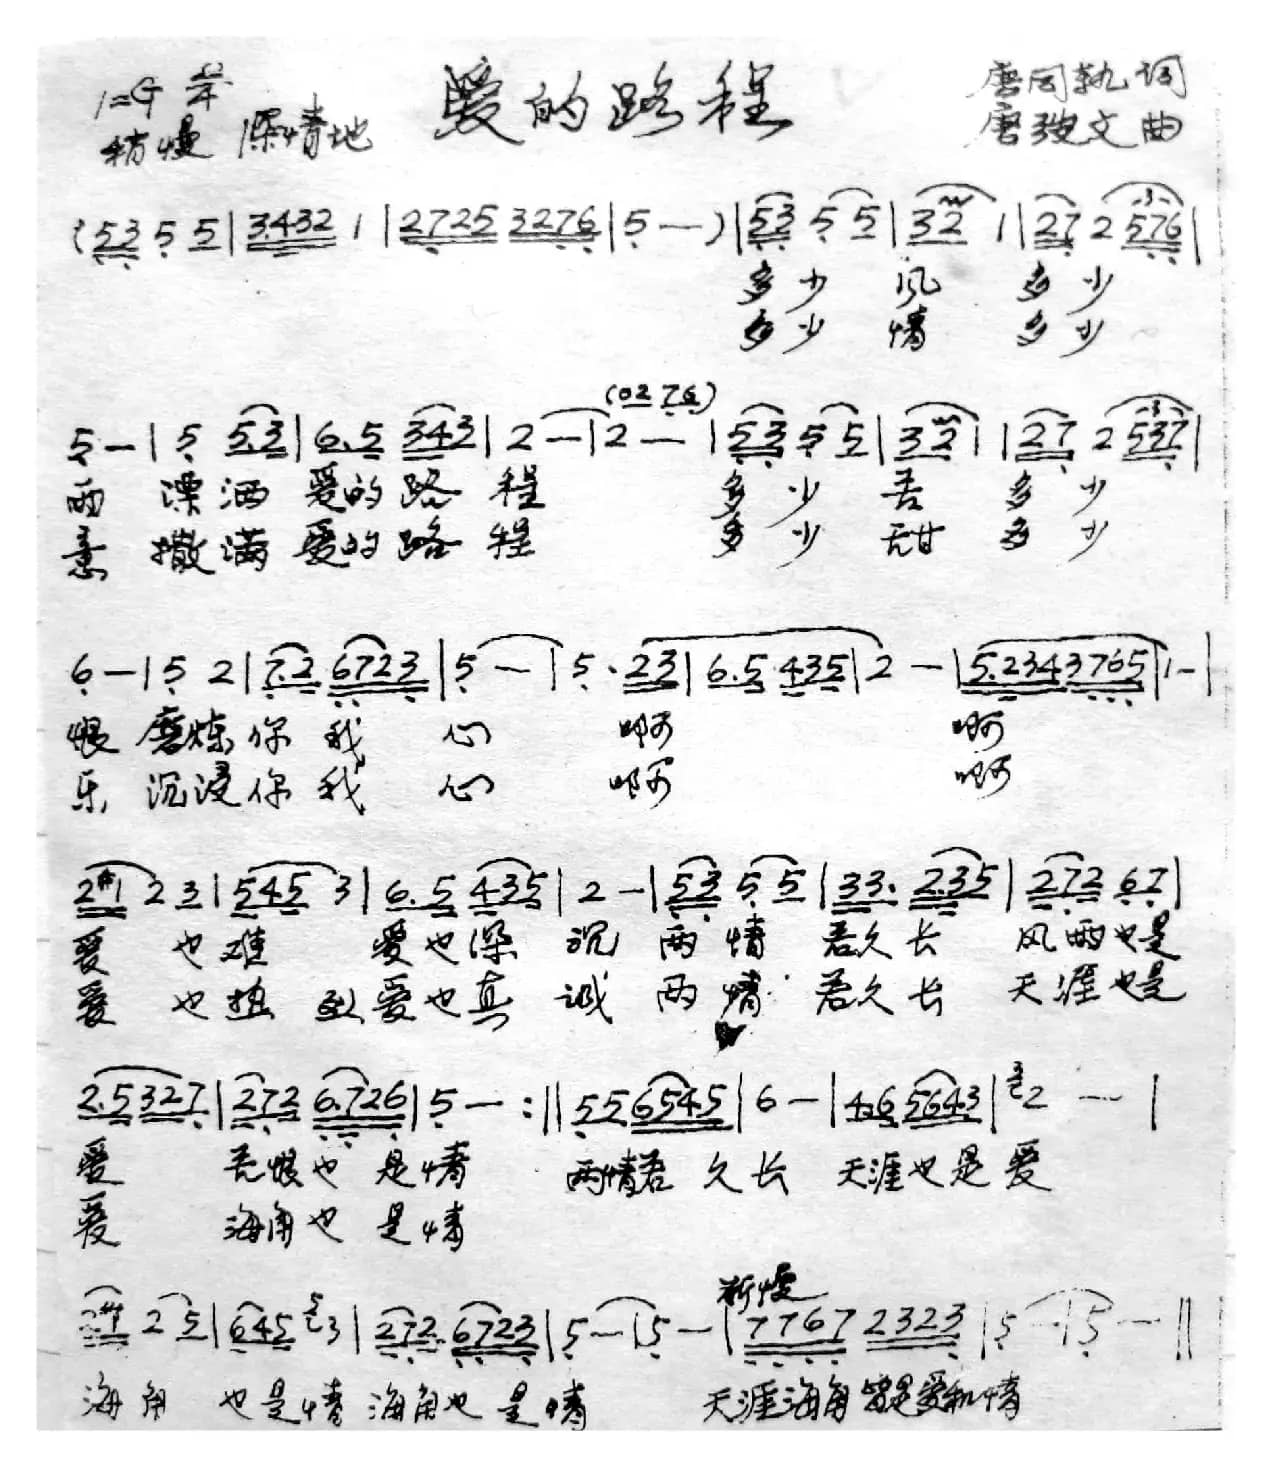 1=G 2/4 爱的路程 唐同执词
稍慢 深情地 唐 文曲
(53 5 5 | 3.432 1 | 2725 3276 | 5 — ) | 53 5 5 | 32 1 | 27 2 576 |
多少 风 多少
多少 情 多少
(02 76)
5 — | 5 53 | 6.5 343 | 2 — | 2 — | 53 5 5 | 32 1 | 27 2 537 |
雨 漂洒 爱的路程 多少 苦 多少
意 撒满 爱的路程 多少 甜 多少
6 — | 5 2 | 7.2 6723 | 5 — | 5 · 23 | 6.5 435 | 2 — | 5.2343765 | 1 — |
恨 磨炼你我 心 啊 啊
乐 沉浸你我 心 啊 啊
2#1 2 3 | 545 3 | 6.5 435 | 2 — | 53 5 5 | 33. 2.35 | 272 67 |
爱 也难 爱也深 沉 两情 若久长 风雨也是
爱 也热 烈爱也真 诚 两情 若久长 天涯也是
2.5327 | 272 6.726 | 5 — :|| 55 6545 | 6 — | 4.6 5643 | 3 2 — |
爱 苦恨也是情 两情若 久长 天涯也是爱
爱 海角也是情
渐慢
2 5 | 645 5 3 | 272. 6723 | 5 — | 5 — | 7767 2323 | 5 — | 5 — ||
海角 也是情 海角也是情 天涯海角皆是爱和情